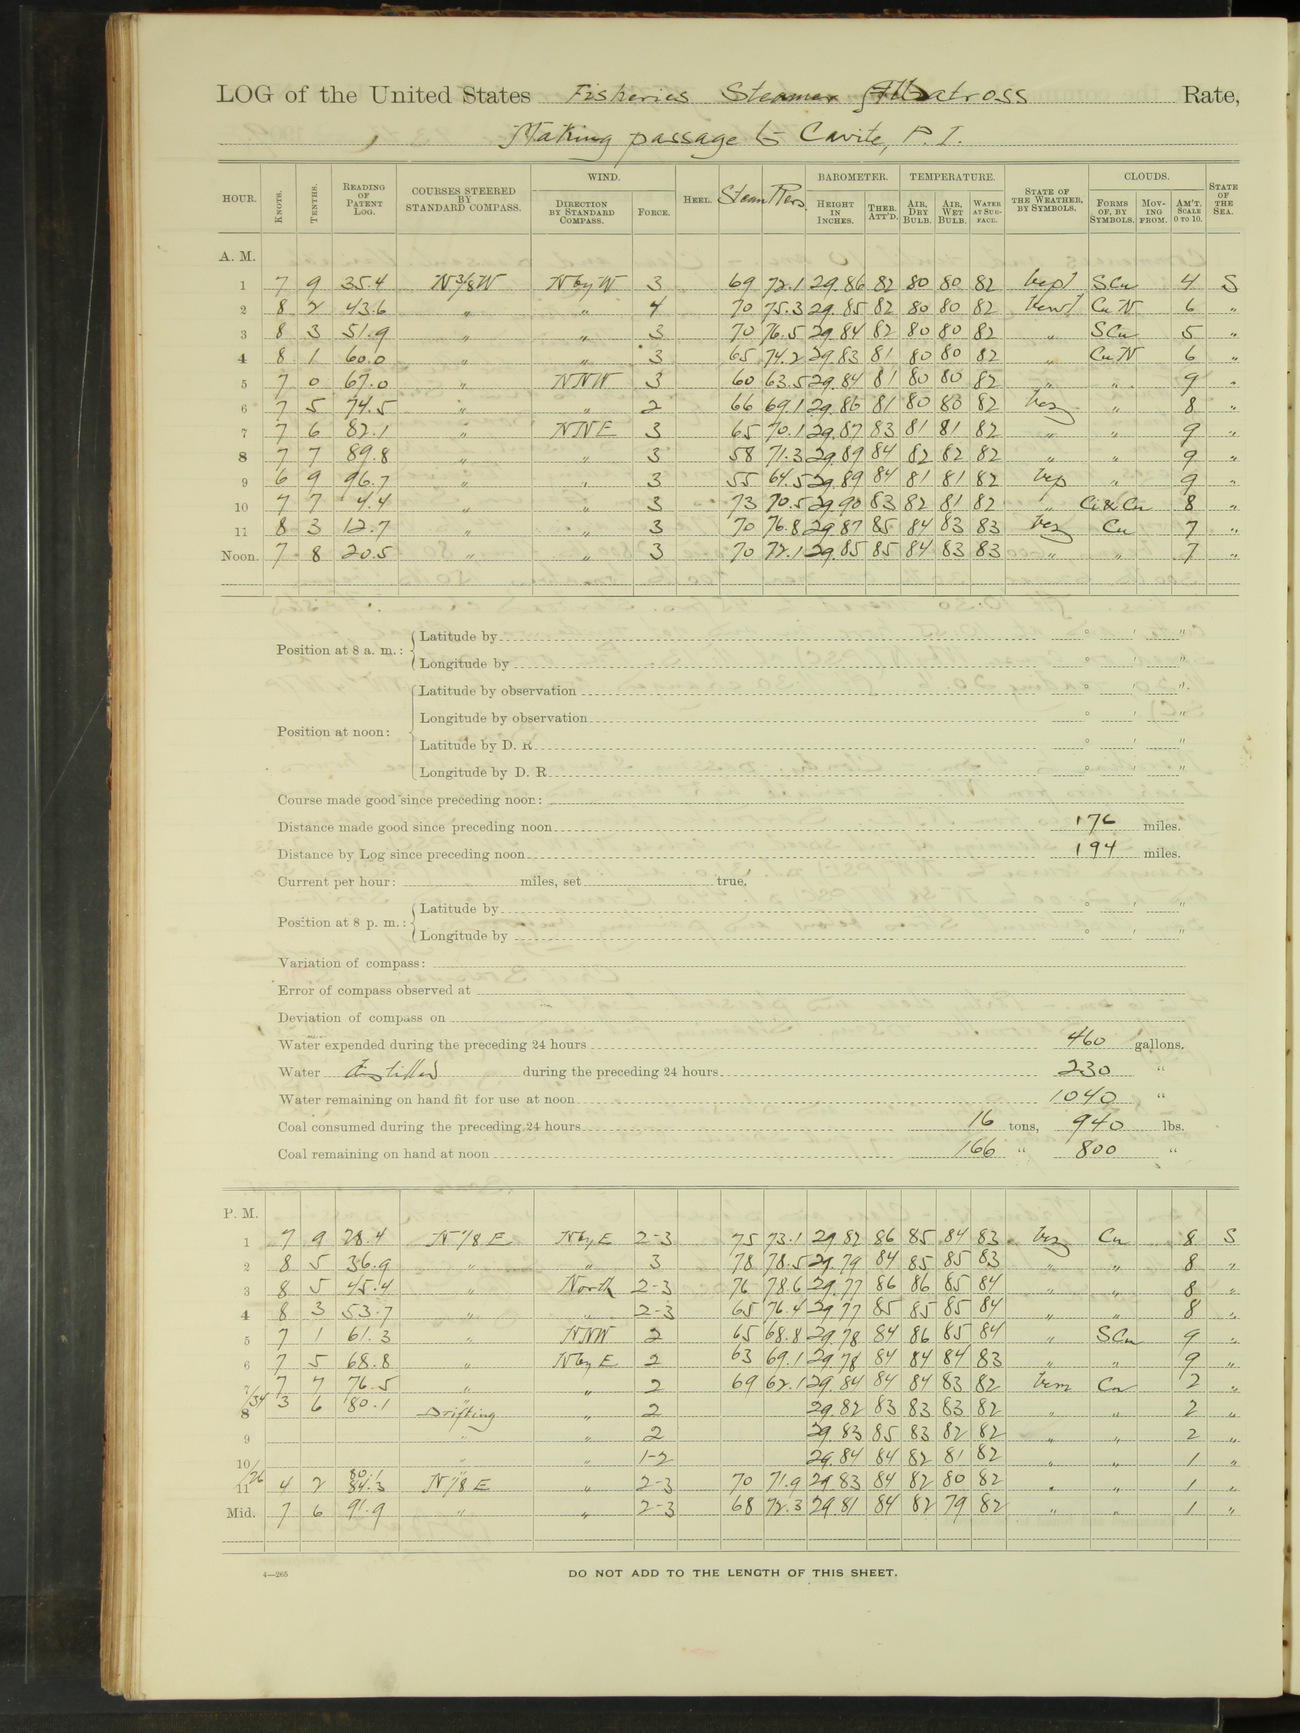 LOG of the United States Fisheries Steamer Albatross Rate,
Making passage to Cavite, P. I.
HOUR. KNOTS. TENTHS. READING OF PATENT LOG. COURSES STEERED BY STANDARD COMPASS. WIND. DIRECTION BY STANDARD COMPASS. FORCE. HEEL. Steam Revs. BAROMETER. HEIGHT IN INCHES. THER. ATT'D. TEMPERATURE. AIR, DRY BULB. AIR, WET BULB. WATER AT SURFACE. STATE OF THE WEATHER, BY SYMBOLS. CLOUDS. FORMS OF, BY SYMBOLS. MOVING FROM. AM'T. SCALE 0 TO 10. STATE OF THE SEA.
A. M.
1 7 9 35.4 N 3/8 W N by W 3 69 72.1 29.86 82 80 80 82 S Cu 4 S
2 8 2 43.6 " " 4 70 75.3 29.85 82 80 80 82 Cu N 6 "
3 8 3 51.9 " " 3 70 76.5 29.84 82 80 80 82 " S Cu 5 "
4 8 1 60.0 " " 3 65 74.2 29.83 81 80 80 82 " Cu N 6 "
5 7 0 67.0 " NNW 3 60 63.5 29.84 81 80 80 82 " " 9 "
6 7 5 74.5 " " 2 66 69.1 29.86 81 80 80 82 bcq " 8 "
7 7 6 82.1 " NNE 3 65 70.1 29.87 83 81 81 82 " " 9 "
8 7 7 89.8 " " 3 58 71.3 29.89 84 82 82 82 " " 9 "
9 6 9 96.7 " " 3 55 64.5 29.89 84 81 81 82 bcp " 9 "
10 7 7 4.4 " " 3 73 70.5 29.90 83 82 81 82 " Ci & Cu 8 "
11 8 3 12.7 " " 3 70 76.8 29.87 85 84 83 83 bcq Cu 7 "
Noon. 7 8 20.5 " " 3 70 72.1 29.85 85 84 83 83 " " 7 "
Position at 8 a. m.: Latitude by ° ' "
Longitude by ° ' "
Position at noon: Latitude by observation ° ' "
Longitude by observation ° ' "
Latitude by D. R ° ' "
Longitude by D. R ° ' "
Course made good since preceding noon:
Distance made good since preceding noon 176 miles.
Distance by Log since preceding noon 194 miles.
Current per hour: miles, set true.
Position at 8 p. m.: Latitude by ° ' "
Longitude by ° ' "
Variation of compass:
Error of compass observed at
Deviation of compass on
Water expended during the preceding 24 hours 460 gallons.
Water distilled during the preceding 24 hours 230 "
Water remaining on hand fit for use at noon 1040 "
Coal consumed during the preceding 24 hours 16 tons, 940 lbs.
Coal remaining on hand at noon 166 " 800 "
P. M.
1 7 9 28.4 N 1/8 E N by E 2-3 75 73.1 29.82 86 85 84 83 bcq Cu 8 S
2 8 5 36.9 " " 3 78 78.5 29.79 84 85 85 83 " " 8 "
3 8 5 45.4 " North 2-3 76 78.6 29.77 86 86 85 84 " " 8 "
4 8 3 53.7 " " 2-3 65 76.4 29.77 85 85 85 84 " " 8 "
5 7 1 61.3 " NNW 2 65 68.8 29.78 84 86 85 84 " S Cu 9 "
6 7 5 68.8 " N by E 2 63 69.1 29.78 84 84 84 83 " " 9 "
7 7 7 76.5 " " 2 69 62.1 29.84 84 84 83 82 bcm Cu 2 "
7/34 8 3 6 80.1 " Drifting " 2 29.82 83 83 83 82 " " 2 "
9 " " 2 29.83 85 83 82 82 " " 2 "
10 " " 1-2 29.84 84 82 81 82 " " 1 "
10/26 11 4 2 80.1 84.3 N 1/8 E " 2-3 70 71.9 29.83 84 82 80 82 " " 1 "
Mid. 7 6 91.9 " " 2-3 68 72.3 29.81 84 82 79 82 " " 1 "
4—265
DO NOT ADD TO THE LENGTH OF THIS SHEET.